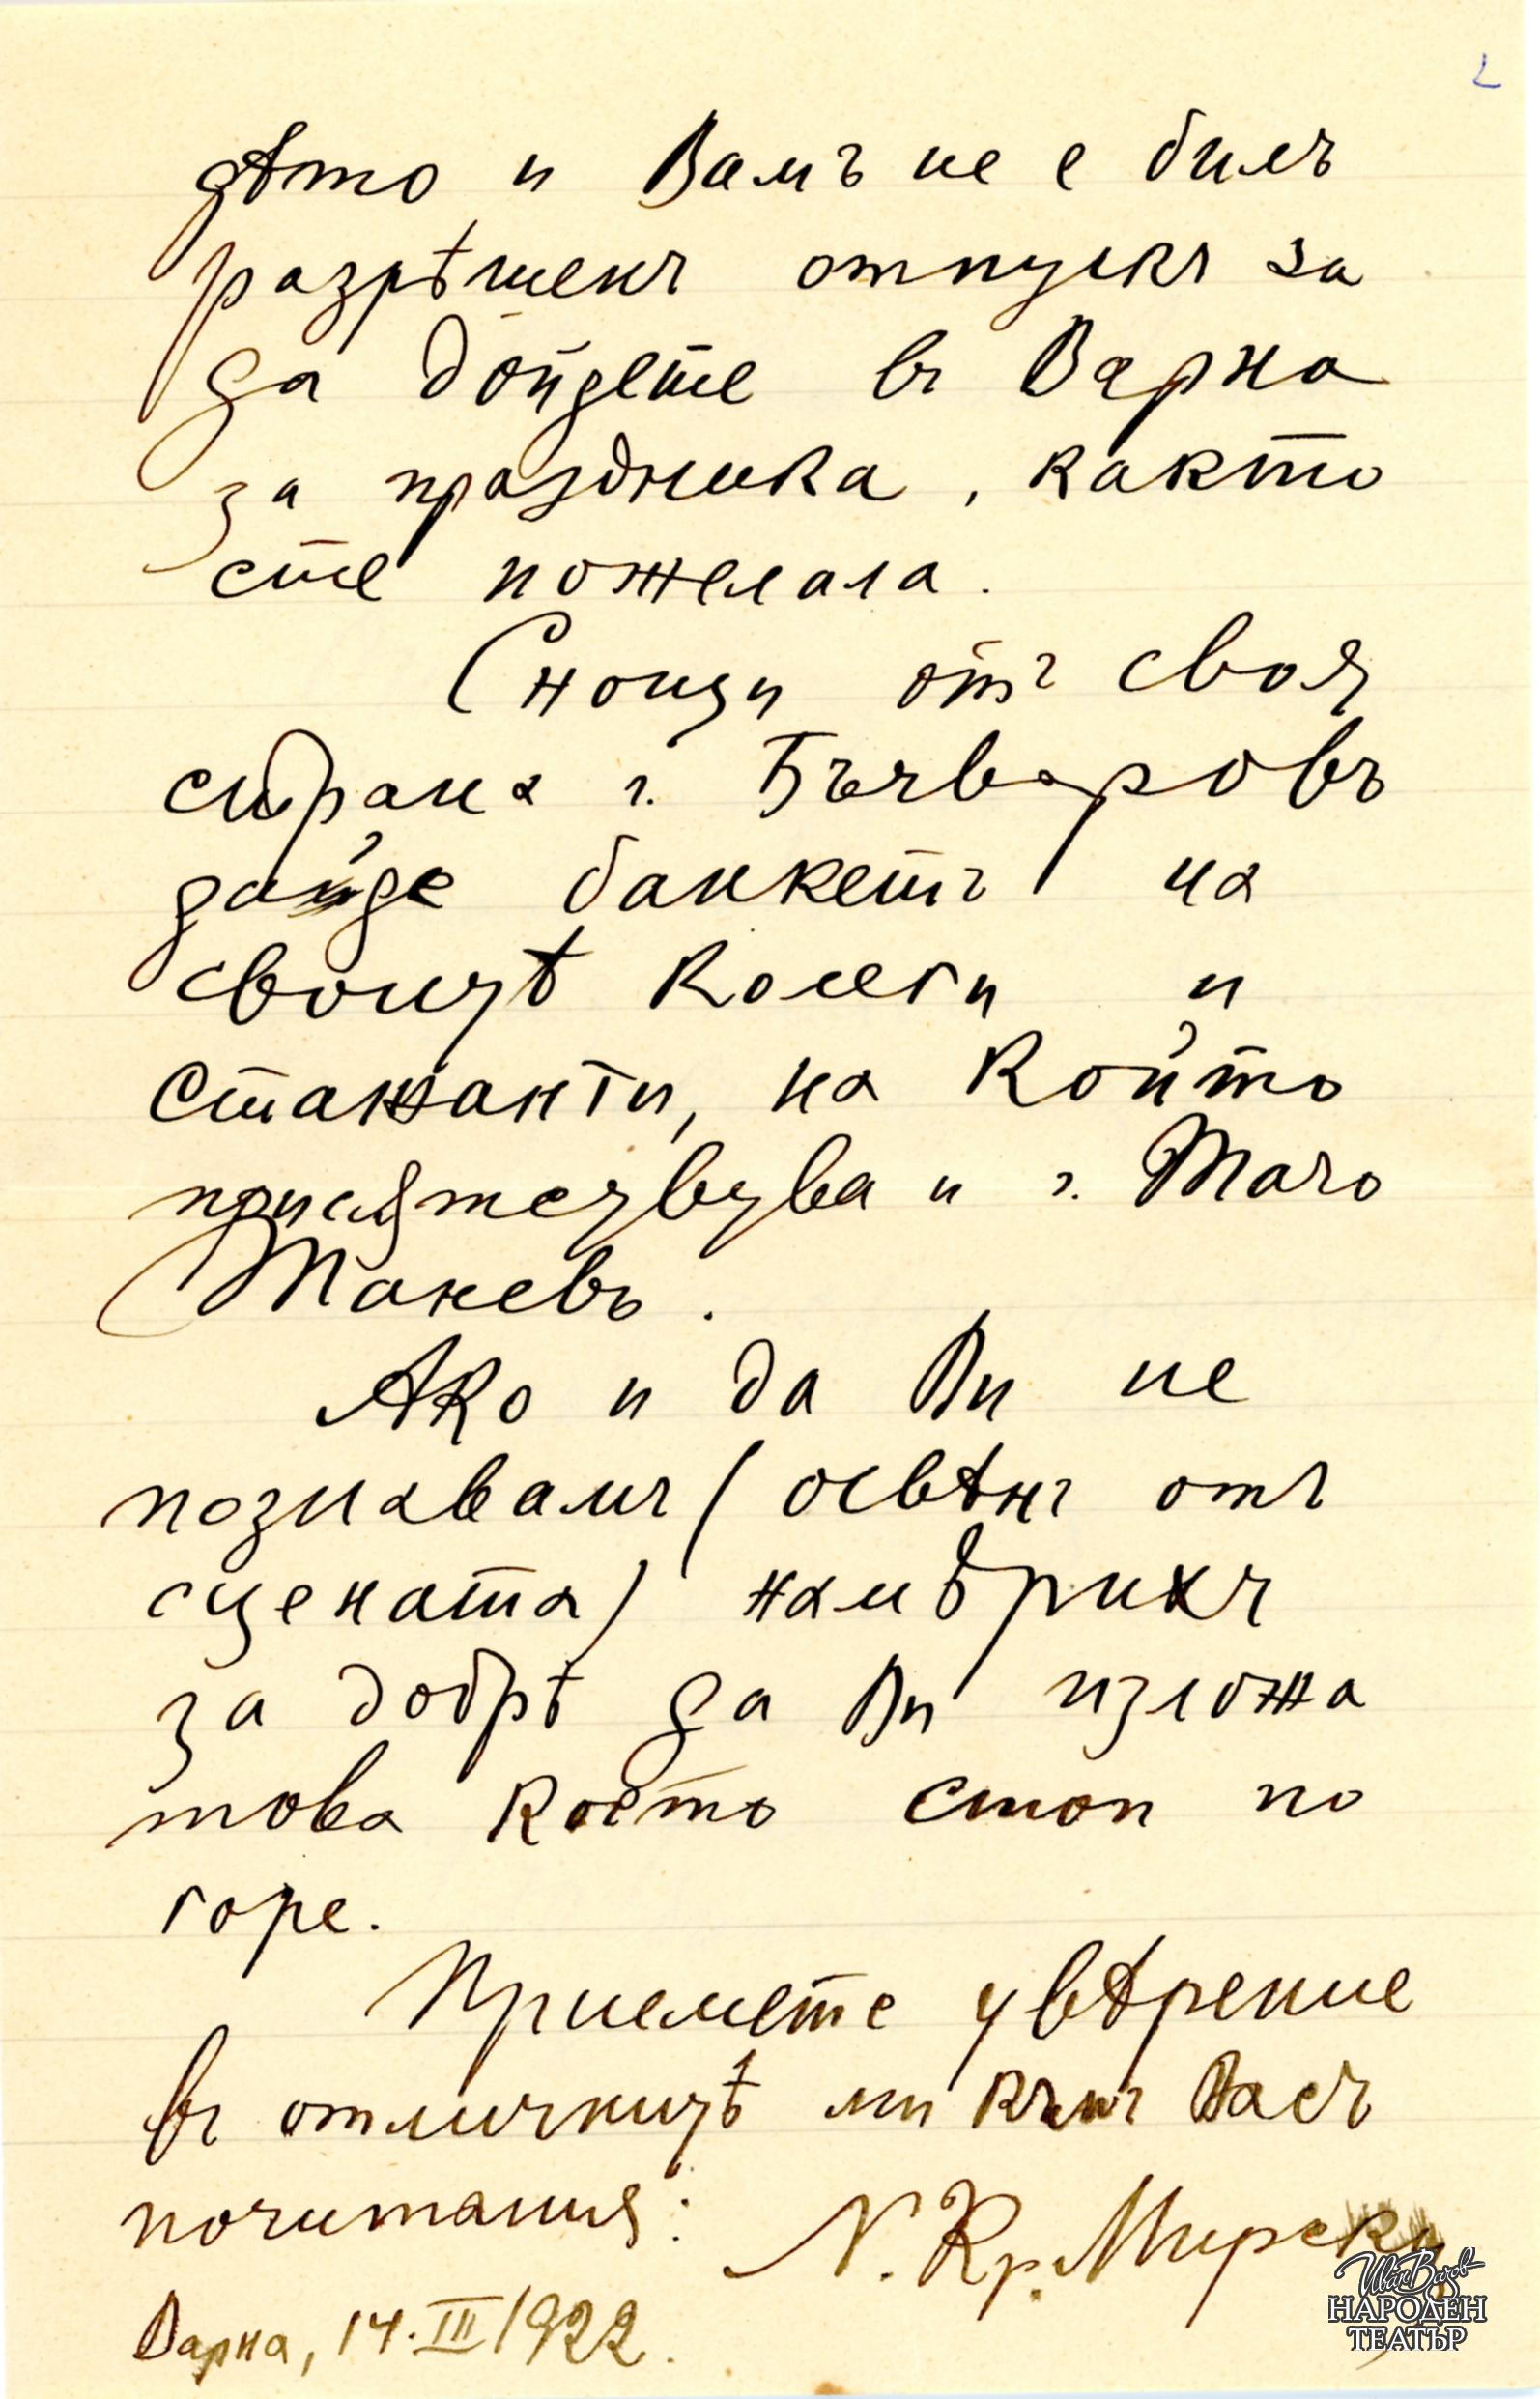 2
дѣто и Вамъ не е билъ
разрѣшенъ отпускъ за
да дойдете въ Варна
за празника, както
сте пожелала.
Снощи отъ своя
страна г. Бъчваровъ
даде банкетъ на
своитѣ колеги и
стажанти, на който
присѫтствува и г. Тачо
Таневъ.
Ако и да Ви не
познавамъ (освѣнъ отъ
сцената) намѣрихъ
за добрѣ да Ви изложа
това което стои по
горе.
Приемете увѣрение
въ отличнитѣ ми къмъ Васъ
почитания:
Кр. Мирски
Варна, 14.III 1922.
Иван Вазов
НАРОДЕН
ТЕАТЪР